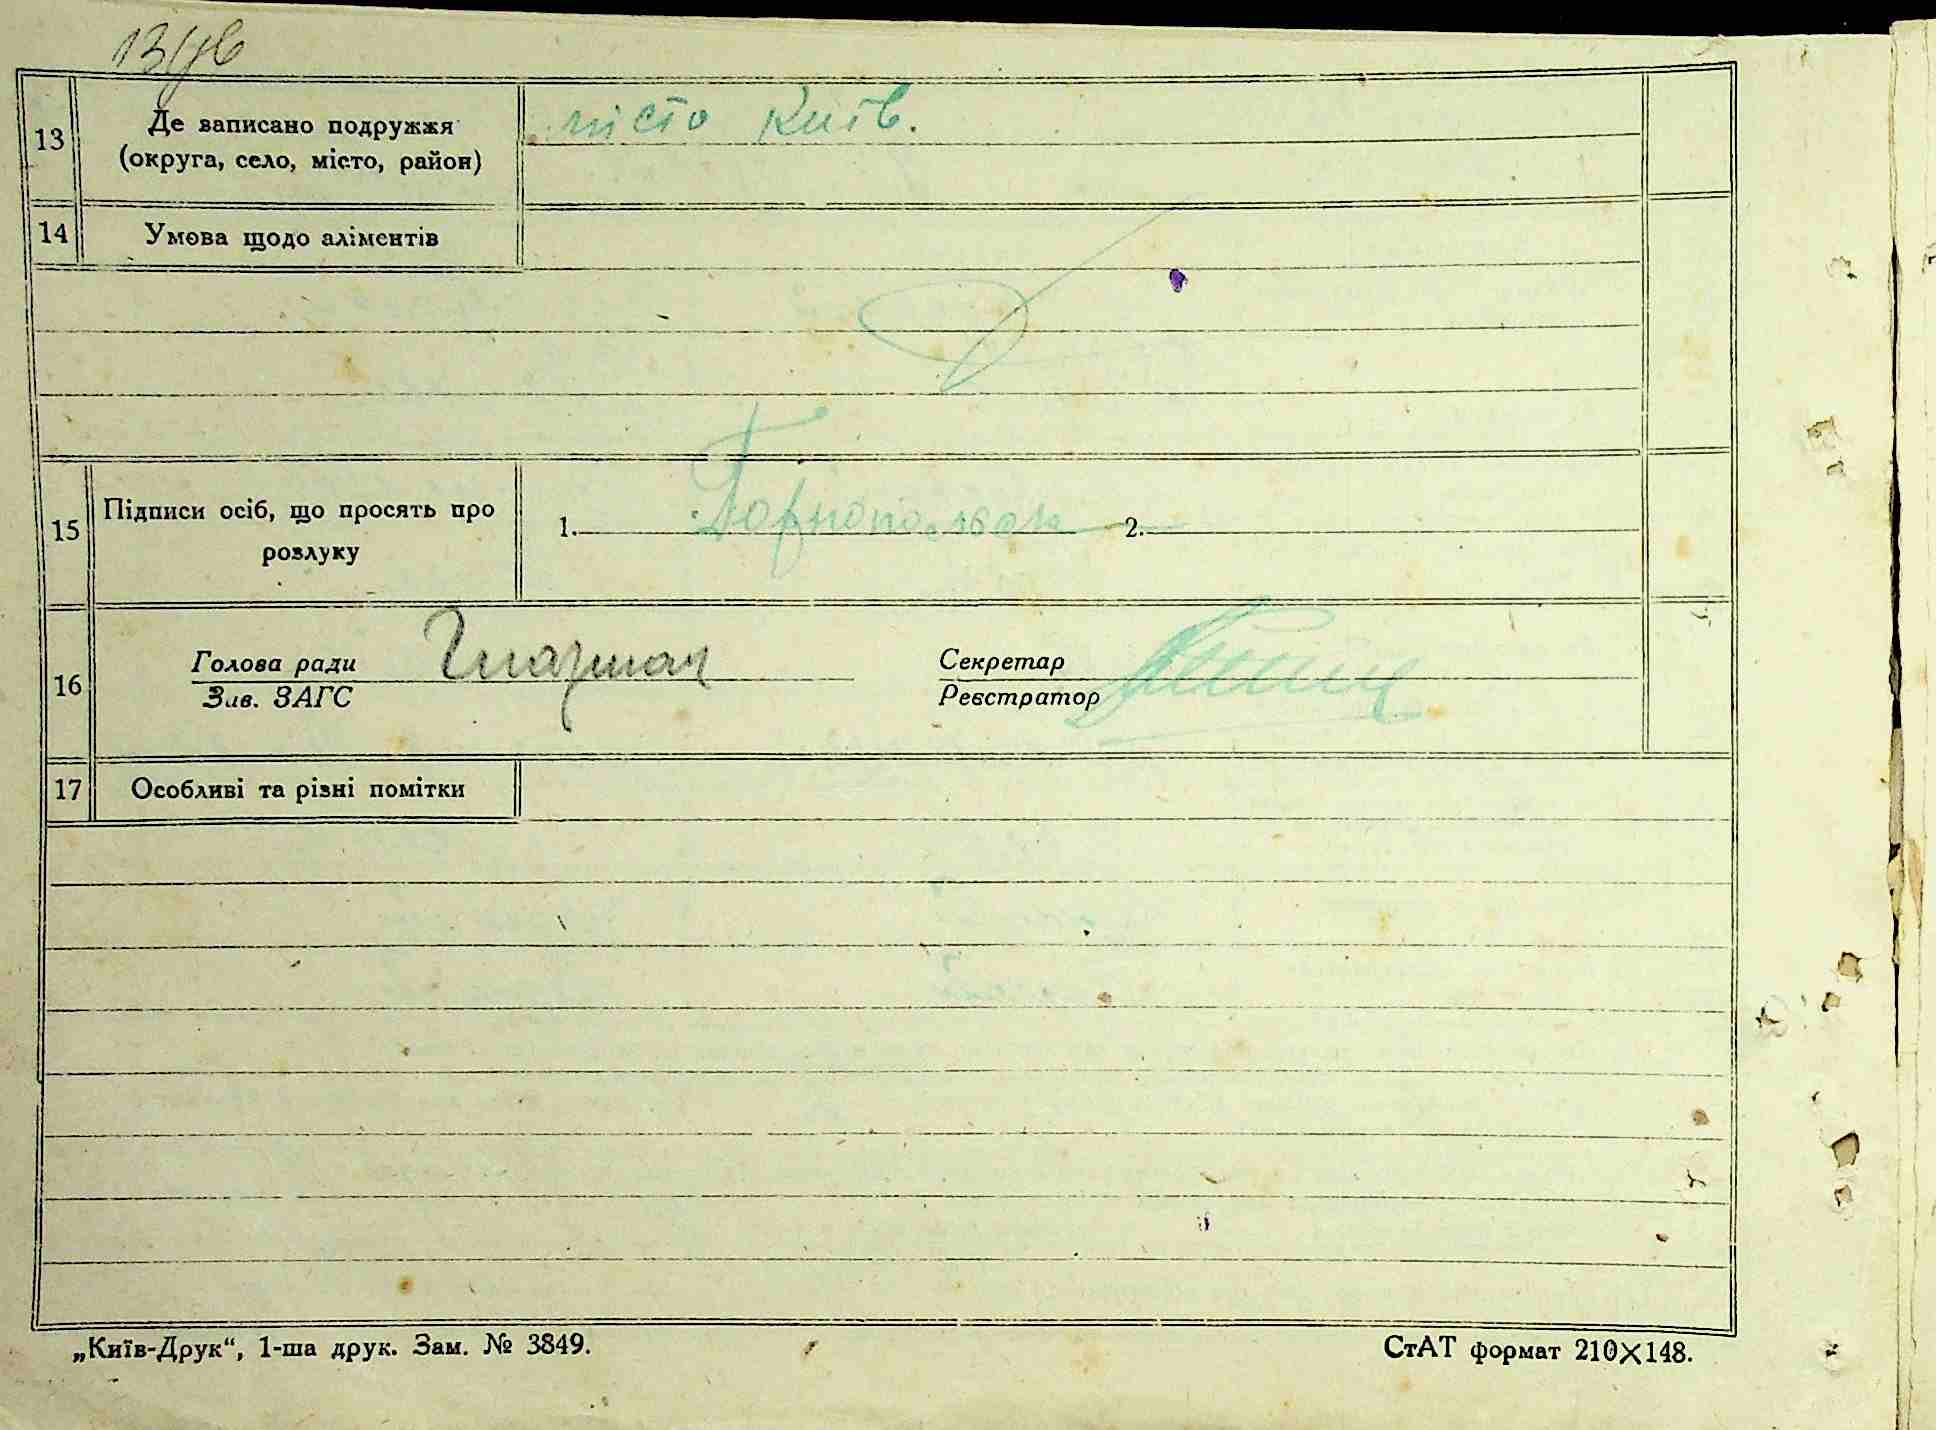 13
Де записано подружжя
(округа, село, місто, район)
місто Київ.
14
Умова щодо аліментів
15
Підписи осіб, що просять про
розлуку
1.
2.
16
Голова ради
Зав. ЗАГС
Секретар
Реєстратор
17
Особливі та різні помітки
„Київ-Друк“, 1-ша друк. Зам. № 3849.
СтАТ формат 210×148.